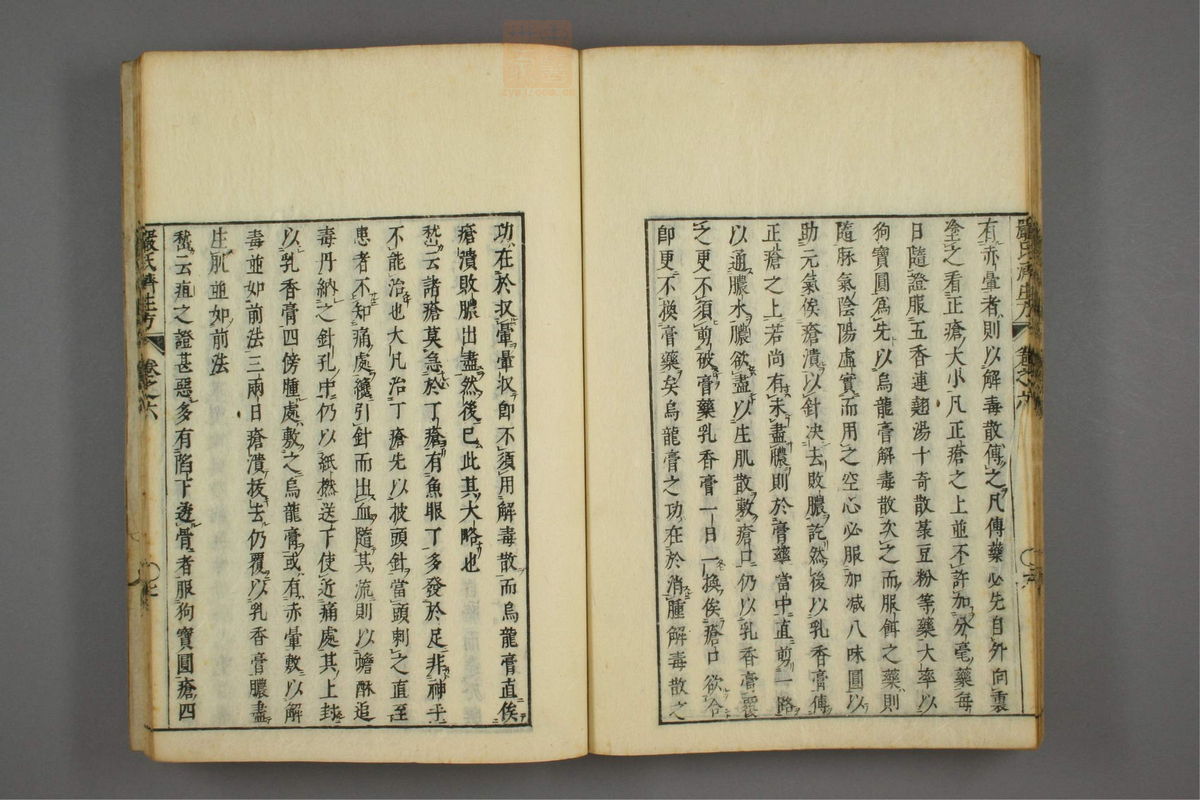 有赤暈者則以解毒散傅之凡傅藥必先自外向裏
塗之看正瘡大小凡正瘡之上並不許加分毫藥每
日隨證服五香連翹湯十奇散菉豆粉等藥大率以
狗寶圓爲先以烏龍膏解毒散次之而服餌之藥則
隨脉氣陰陽虛實而用之空心必服加减八味圓以
助元氣俟瘡潰以針决去敗膿訖然後以乳香膏傅
正瘡之上若尚有未盡膿則於膏藥當中直剪一路
以通膿水膿欲盡以生肌散敷瘡口仍以乳香膏裹
之更不須剪破膏藥乳香膏一日一換俟瘡口欲合
卽更不換膏藥矣烏龍膏之功在於消腫解毒散之
嚴氏濟生方 卷之六
功在於収暈暈収卽不須用解毒散而烏龍膏直俟
瘡潰敗膿出盡然後已此其大略也
嵆云諸瘡莫急於丁瘡有魚眼丁多發於足非神手
不能治也大凡治丁瘡先以披頭針當頭刺之直至
患者不知痛處纔引針而出血隨其流則以蟾酥追
毒丹納之針孔中仍以紙撚送下使近痛處其上封
以乳香膏四傍腫處敷之烏龍膏或有赤暈敷以解
毒並如前法三兩日瘡潰拔去仍覆以乳香膏膿盡
生肌並如前法
嵆云疽之證甚惡多有陷下透骨者服狗寶圓瘡四
嚴氏濟生方 卷之六 〇七